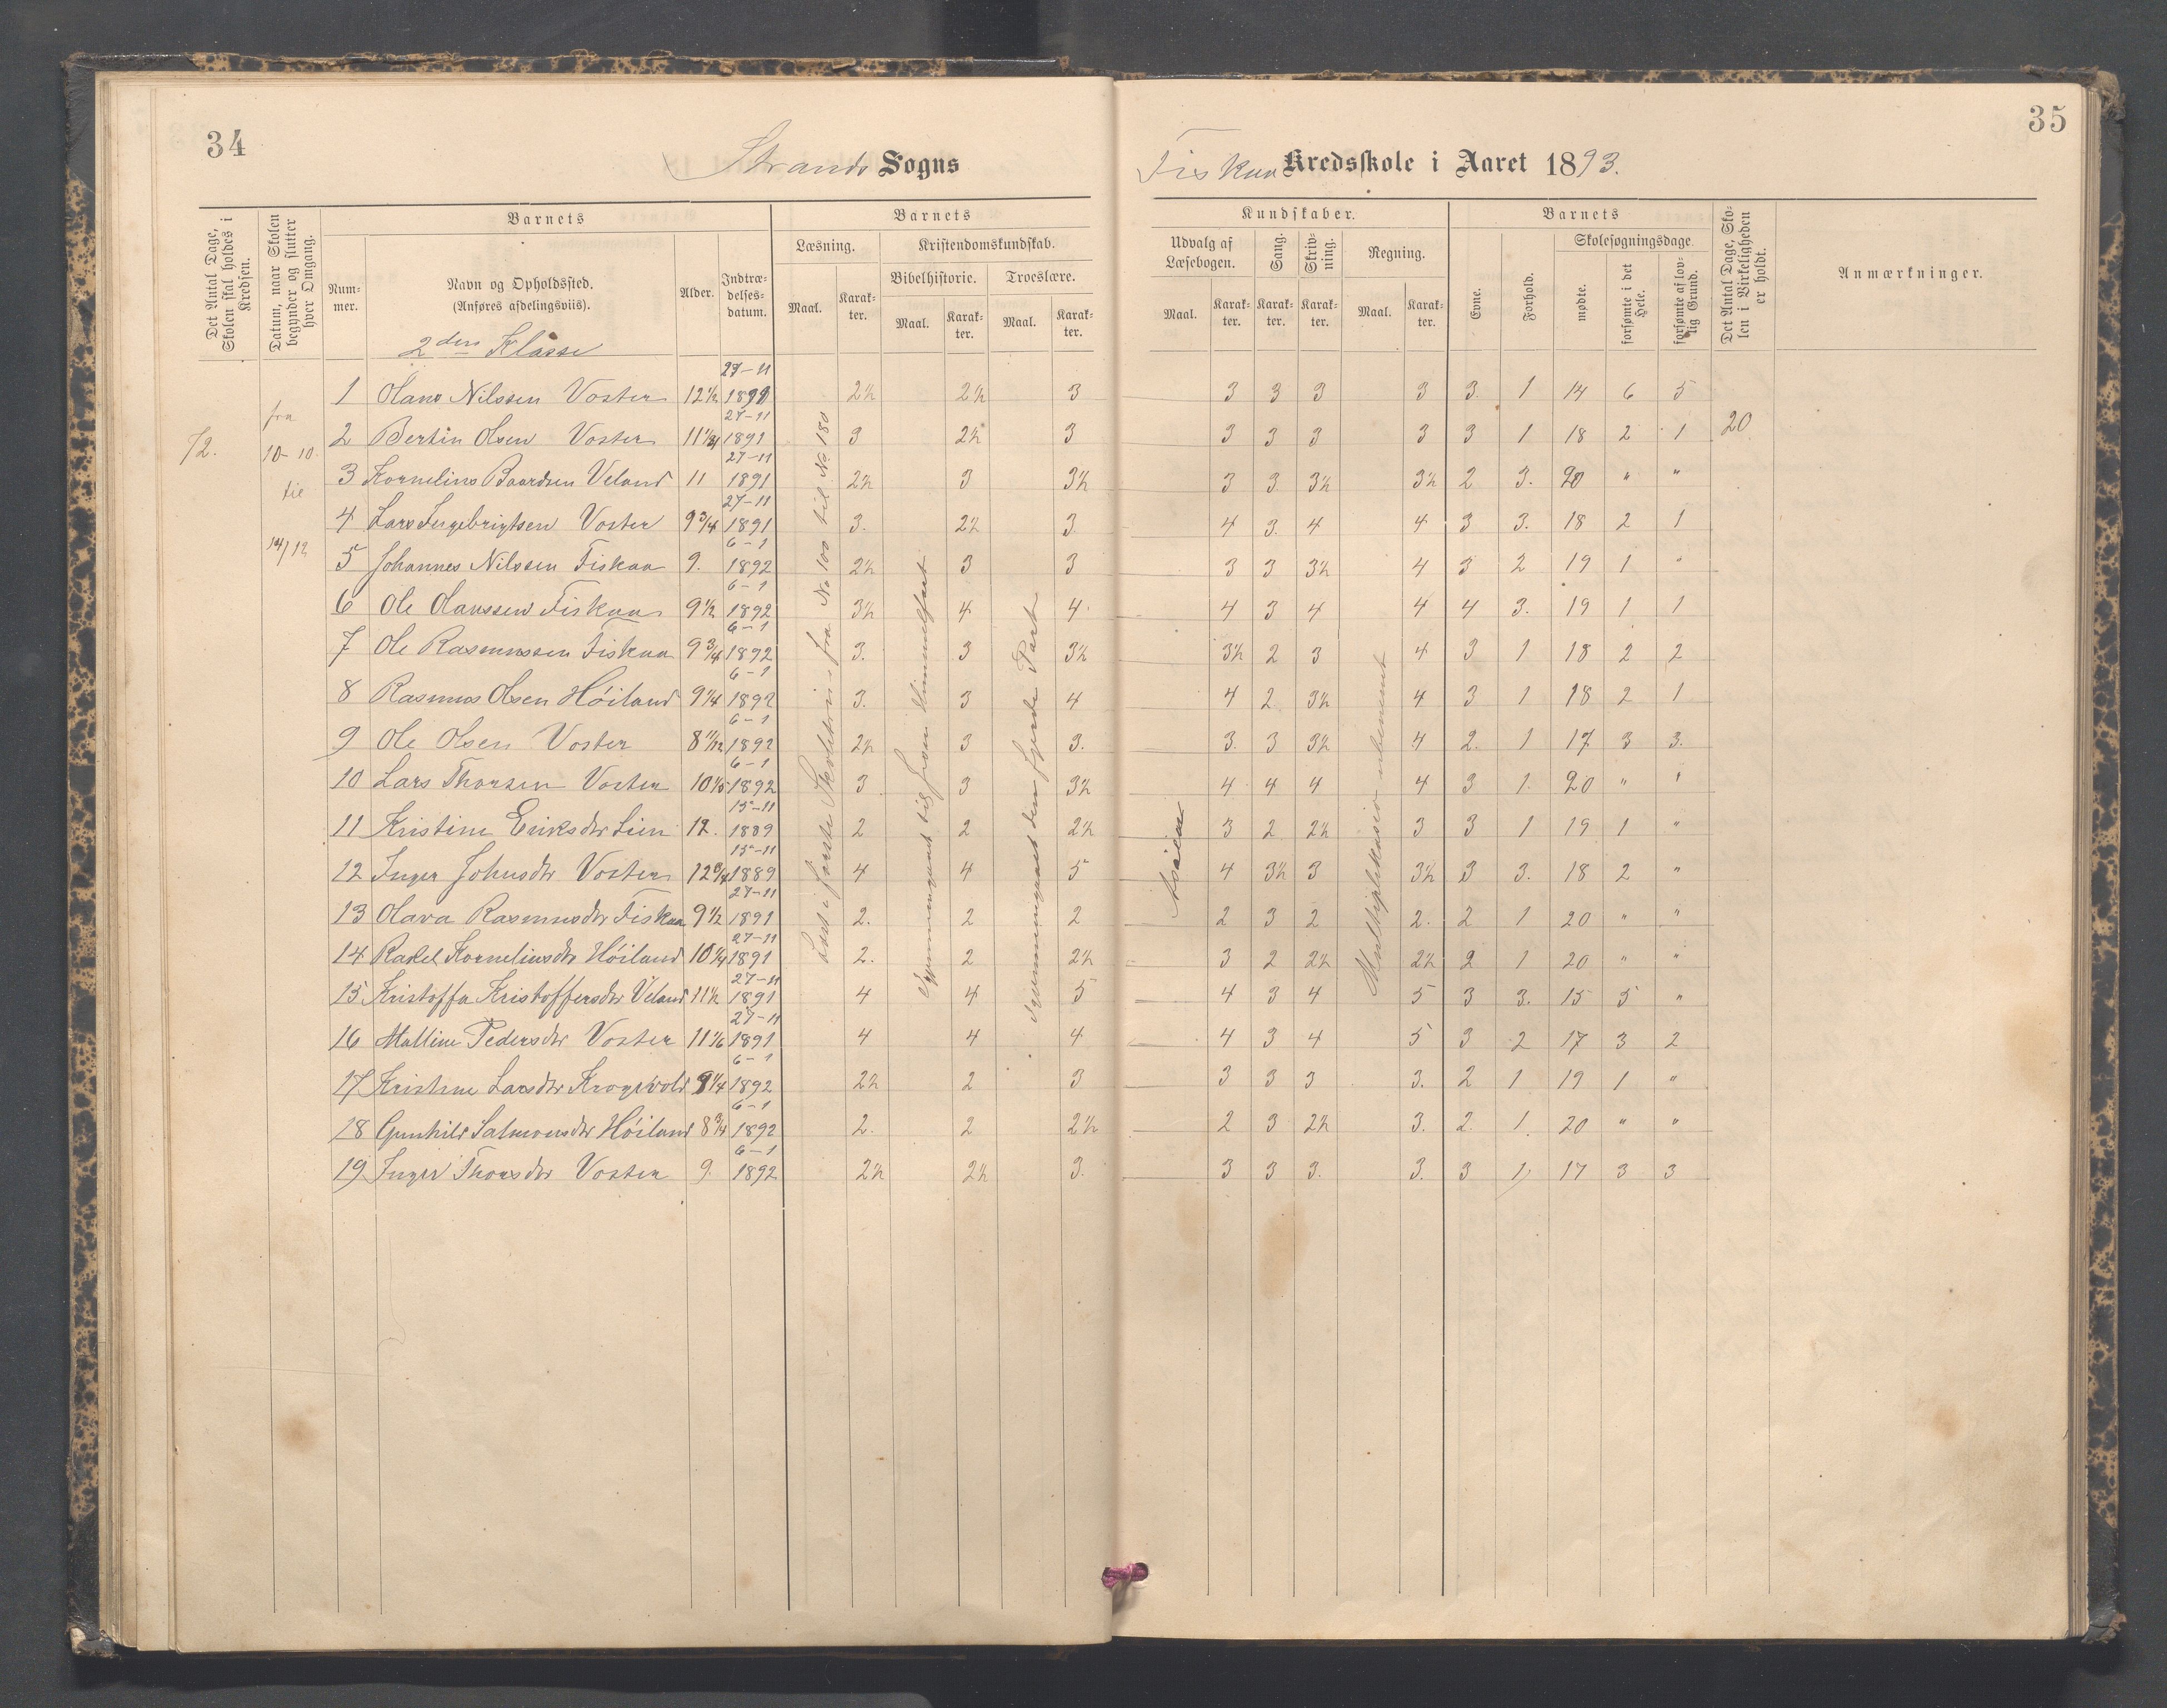 34
Strands Sogns
Fiskaa Kredsskole i Aaret 1893.
35
Det Antal Dage, Skolen skal holdes i Kredsen.
Datum, naar Skolen begynder og slutter hver Omgang.
Barnets
Nummer.
Navn og Opholdssted. (Anføres afdelingsviis).
Alder.
Indtrædelsesdatum.
Barnets
Læsning.
Maal.
Karakter.
Kristendomskundskab.
Bibelhistorie.
Maal.
Karakter.
Troeslære.
Maal.
Karakter.
Kundskaber.
Udvalg af Læsebogen.
Maal.
Karakter.
Sang.
Karakter.
Skrivning.
Karakter.
Regning.
Maal.
Karakter.
Barnets
Evne.
Forhold.
Skolesøgningsdage.
mødte.
forsømte i det Hele.
forsømte af lovlig Grund.
Det Antal Dage, Skolen i Virkeligheden er holdt.
Anmærkninger.
2den Klasse
72.
fra
10-10.
til
14/12
20
Læst i første Skoletrin fra No 100 til No 180
Gjennemgaaet til from Himmelfart
Gjennemgaaet den fjerde Part
Multiplikasion ubenævnt
1 Olaus Nilssen Voster 12½ 27-11 1891 2½ 2½ 3 3 3 3 3 3. 1 14 6 5
2 Bertin Olsen Voster 27-11 1891 3 2½ 3 3 3 3 3 3 1 18 2 1
3 Kornelius Baardsen Veland 11 27-11 1891 2½ 3 3½ 3 3. 3½ 3½ 2 3. 20 " "
4 Lars Ingebrigtsen Voster 9¾ 27-11 1891 3. 2½ 3 4 3. 4 4 3 3. 18 2 1
5 Johannes Nilssen Fiskaa 9. 6-1 1892 2½ 3 3 3 3 3½ 4 3 2 19 1 "
6 Ole Olaussen Fiskaa 9½ 6-1 1892 3½ 4 4. 4 3 4 4 4 3. 19 1 1
7 Ole Rasmussen Fiskaa 9¾ 6-1 1892 3. 3 3½ 3½ 2 3 4 3 1 18 2 2
8 Rasmus Olsen Høiland 9¼ 6-1 1892 3. 3 4 4 2 3½ 4 3 1 18 2 1
9 Ole Olsen Voster 8 11/12 6-1 1892 2½ 3 3. 3. 3 3½ 4 2. 1 17 3 3.
10 Lars Thorsen Voster 6-1 1892 3 3 3½ 4 4 4 4 3 1. 20 " "
11 Kristine Eriksdtr Lien 12. 15-11 1889 2 2 2½ 3 2 2½ 3 3 1 19 1 "
12 Inger Johnsdtr Voster 12¾ 15-11 1889 4 4 5 4 3½ 3 3½ 3 3. 18 2 "
13 Olava Rasmusdtr Fiskaa 9½ 27-11 1891 2. 2 2 2 3 2 2. 2 1 20 " "
14 Rakel Korneliusdtr Høiland 10¼ 27-11 1891 2. 2 2½ 3 2 2½ 2½ 2 1 20 " "
15 Kristoffa Kristoffersdtr Veland 11½ 27-11 1891 4 4 5 4 3 4 5 3 3. 15 5 "
16 Malline Pedersdtr Voster 11 1/6 27-11 1891 4 4 4 4 3 4 5 3 2 17 3 2
17 Kristine Larsdtr Krogevold 9¼ 6-1 1892 2½ 2 3 3 3 3 3. 2 1 19 1 "
18 Gunhild Salmonsdtr Høiland 8¾ 6-1 1892 2. 2 2½ 2 3 2½ 3. 2. 1. 20 " "
19 Inger Thorsdtr Voster 9. 6-1 1892 2½ 2½ 3. 3 3 3. 3. 3 1 17 3 3